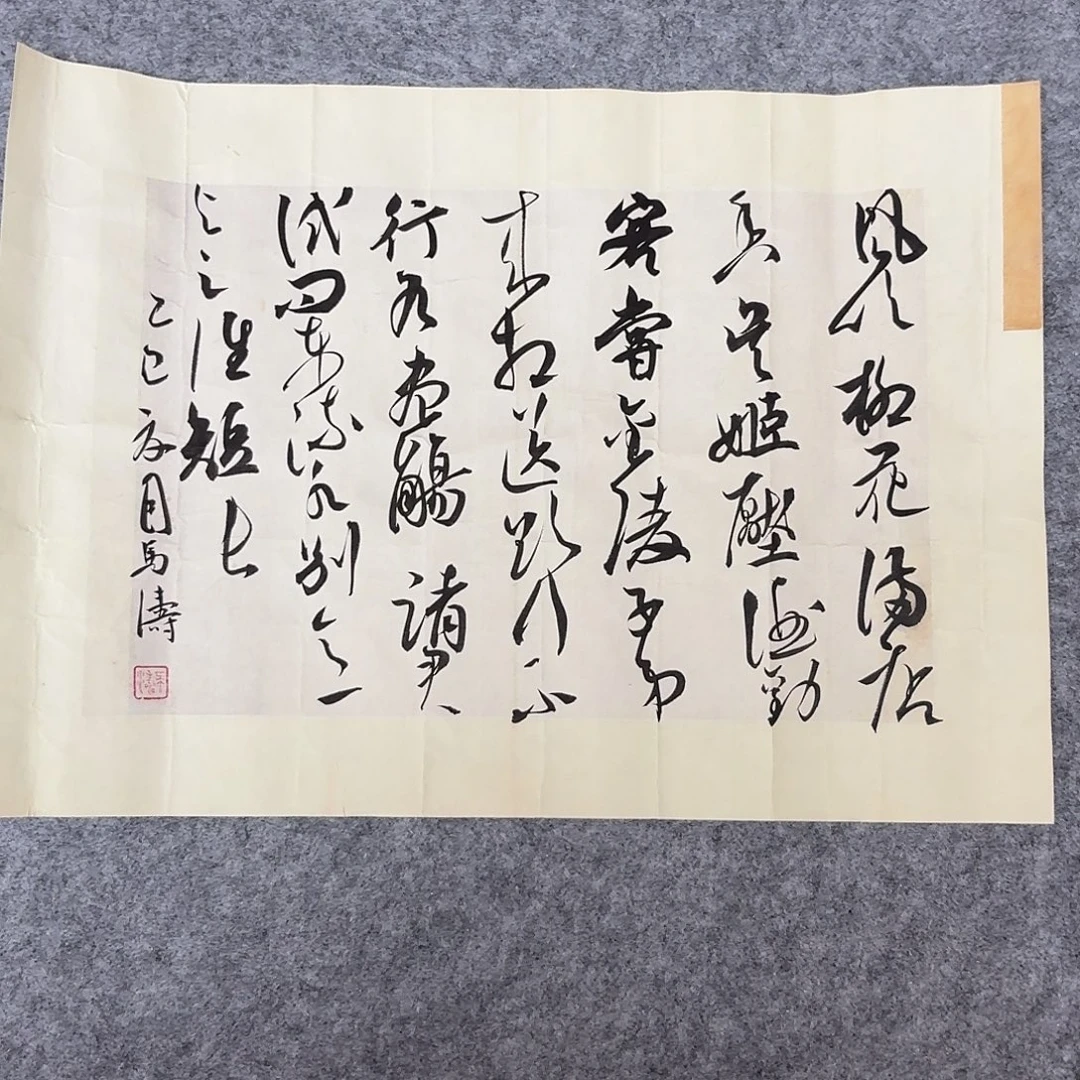 風吹柳花滿店
香吳姬壓酒勸
客嘗金陵子弟
來相送欲行不
行各盡觴請君
試問東流水別意
與之誰短長
乙巳夏月馬濤